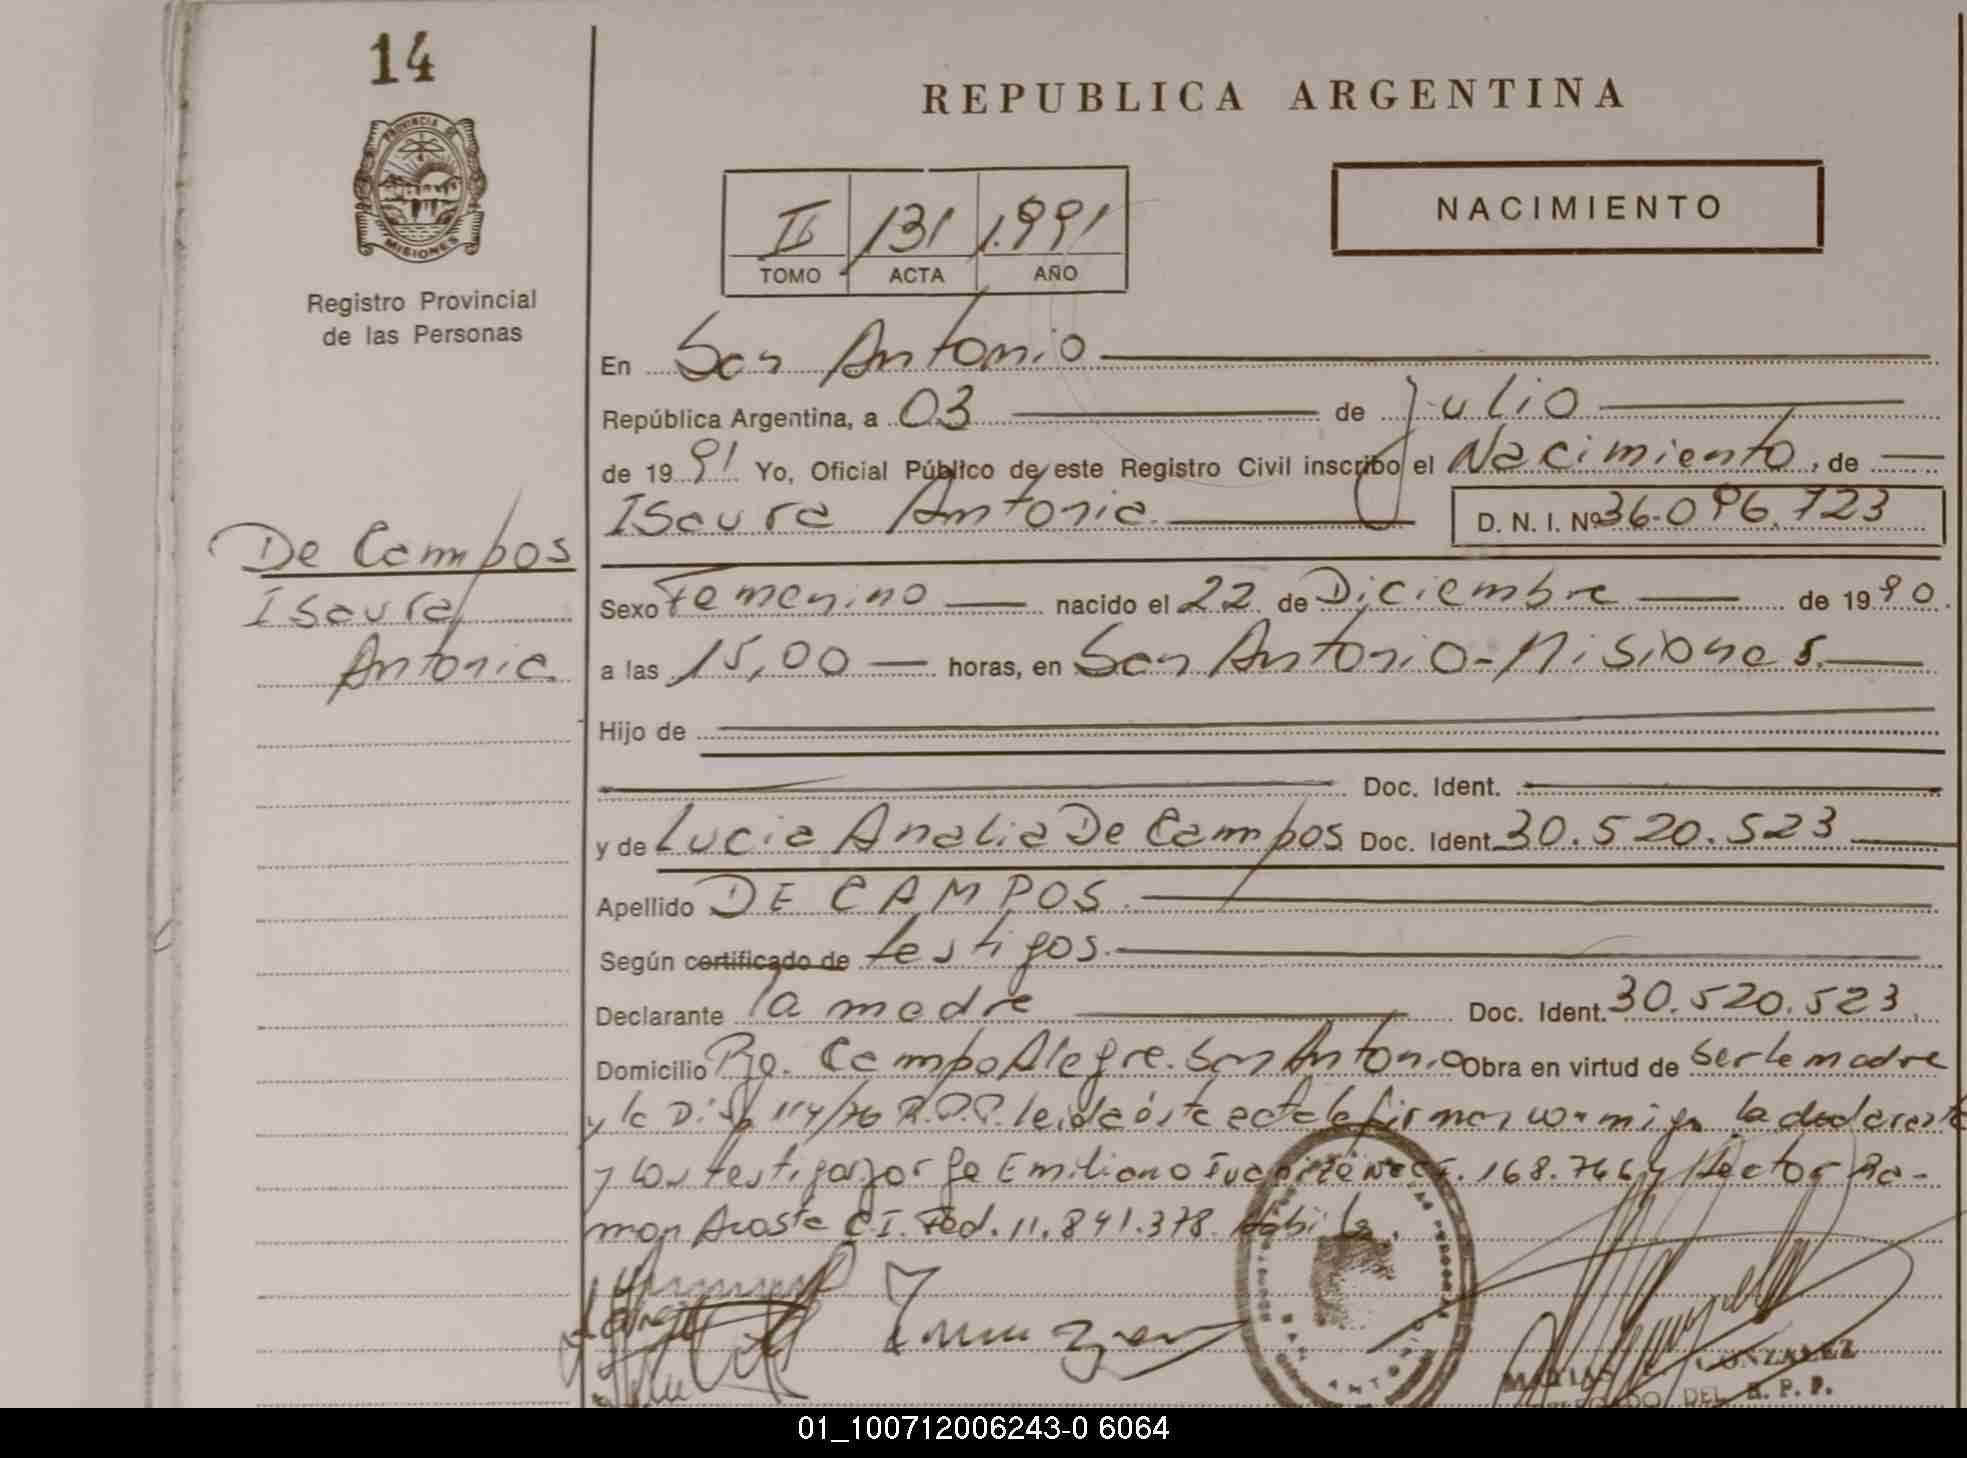 14
PROVINCIA DE
MISIONES
Registro Provincial
de las Personas
REPUBLICA ARGENTINA
II 131 1.991
TOMO ACTA AÑO
NACIMIENTO
En San Antonio
República Argentina, a 03 de Julio
de 1991 Yo, Oficial Público de este Registro Civil inscribo el Nacimiento, de
Isaura Antonia. D. N. I. Nº 36.096.723
De Campos
Isaura
Antonia.
Sexo Femenino nacido el 22 de Diciembre de 1990.
a las 15,00 horas, en San Antonio-Misiones.
Hijo de
Doc. Ident.
y de Lucia Analia De Campos Doc. Ident. 30.520.523
Apellido DE CAMPOS.
Según certificado de testigos.
Declarante la madre Doc. Ident. 30.520.523.
Domicilio Pje. Campo Alegre. San Antonio Obra en virtud de ser la madre
y la Disp 114/76 R.P.P. leida ésta acta la firman conmigo la declarante
y los testigos Jorge Emiliano 168.766 y Hector Ra-
mon Acosta C.I. Fed. 11.841.378.
SAN ANTONIO
MATIAS GONZALEZ
DEL R. P. P.
01_100712006243-0 6064